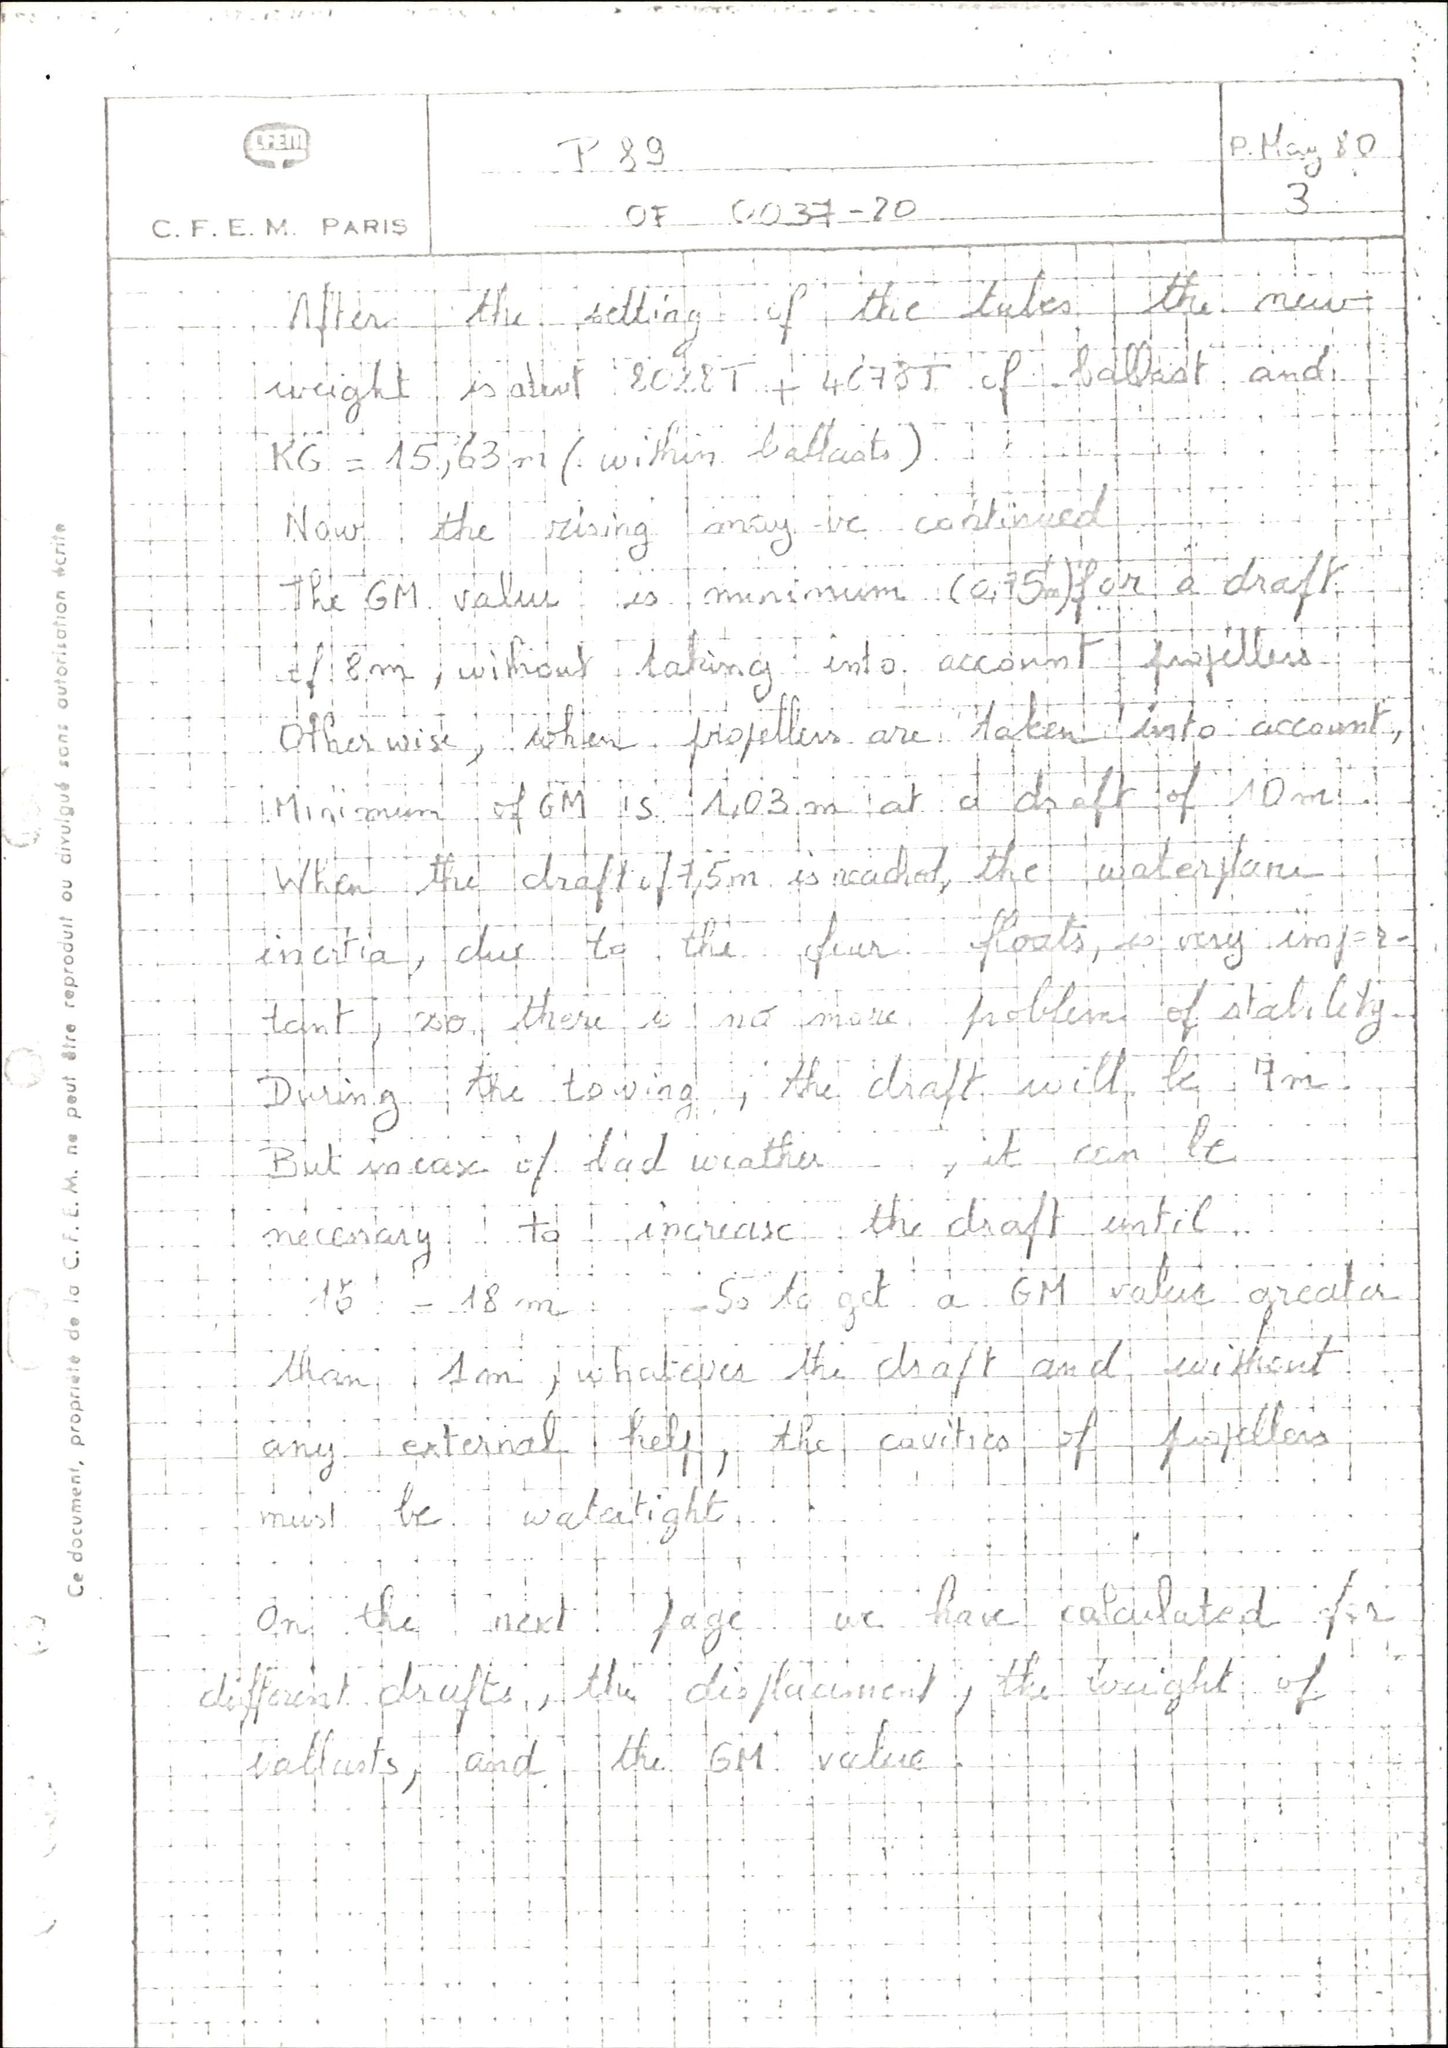 CFEM
C. F. E. M. PARIS
P 89
OF 0037-20
P. May 80
3
After the setting of the tubes the new
weight is about 8028T + 4078T of ballast and
KG = 15,63 m (within ballasts)
Now the rising may be continued
The GM value is minimum (0,75m) for a draft
of 8m, without taking into account propellers
Otherwise, when propellers are taken into account,
Minimum of GM is 1,03 m at a draft of 10 m.
When the draft of 7,5m is reached, the waterplane
inertia, due to the four floats, is very impor-
tant, so there is no more problem of stability.
During the towing, the draft will be 7m.
But in case of bad weather , it can be
necessary to increase the draft until
15 - 18 m So to get a GM value greater
than 1m, whatever the draft and without
any external help, the cavities of propellers
must be watertight.
On the next page we have calculated for
different drafts, the displacement, the weight of
ballasts, and the GM value.
Ce document, propriété de la C. F. E. M. ne peut être reproduit ou divulgué sans autorisation écrite